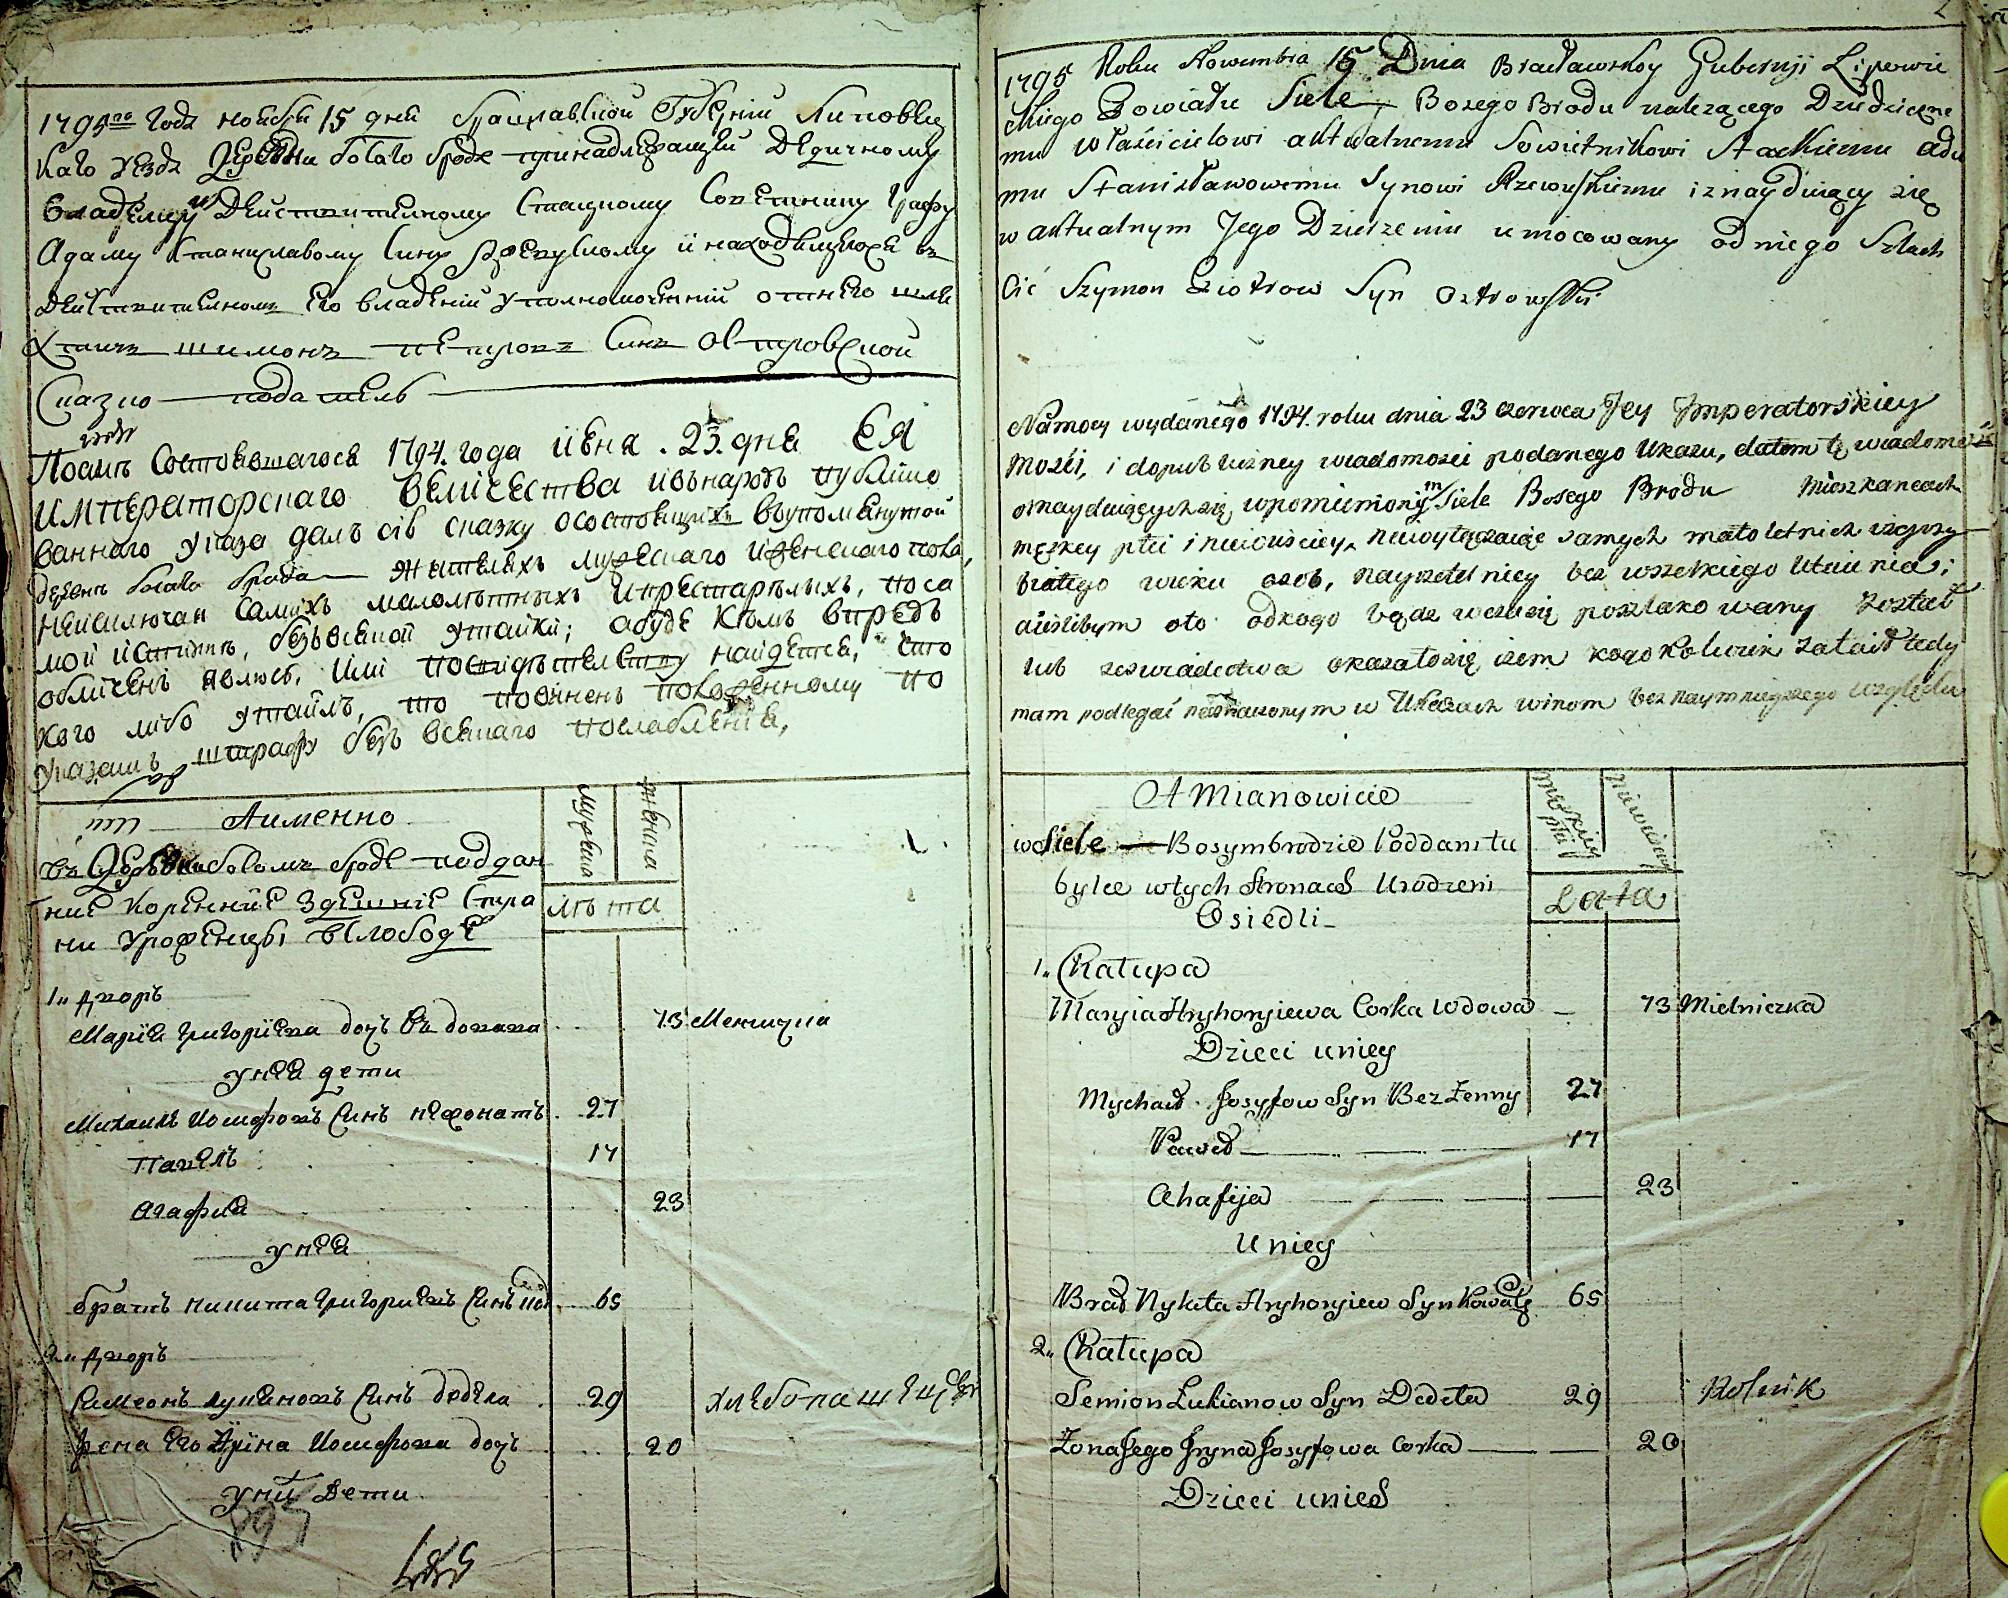 1795го Года ноября 15 дня Брацлавской Губернии Липовец
каго уезда Деревни босаго брода принадлежащей Дедичному
владельцу Действительному Статскому Советнику Графу
Адаму Станиславовому Сину Ржевускому и находящуюся въ
действительномъ Его владении уполномоченний отнего шля
хтичъ шимонъ петровъ Синъ Островской
Сказко податель
Посилъ Состоявшагося 1794. года июня. 23. дня ЕЯ
ИМПЕРАТОРСКАГО ВЕЛИЧЕСТВА ивънародъ публико
ваннаго указа далъ сию сказку осостоящихъ ввупомянутой
деревнъ босаго брода жителяхъ мужескаго иженскаго пола,
неисключая самихъ малолътныхъ ипрестарълыхъ, поса
мой истиннъ, безъвсякой утайки; абуде къмъ впредъ
обличенъ явлюсь, или посвидътельству найдется, что
кого либо утаилъ, то повиненъ положенному по
указамъ штрафу безъ всякаго послабления,
Аименно
мужеска
женска
въ Деревни босомъ броде поддан
ние коренние здешние Стра
ни уроженцы вслободе
лъта
1. дворъ
Мария григориева дочъ вдовава 73 Мелничка
унея дети
Михаилъ иосифовъ Синъ неженатъ 27
Павелъ 17
Агафия 23
унея
братъ никита григориевъ Синъ 65
2. дворъ
Симеонъ лукяновъ Синъ дедела 29 хлебопашецъ
жена его Ирина иосифова дочъ 20
унихъ дети
895
1795 Roku Nowembra 15 Dnia Bracławskoy Gubernji Lipowie
ckiego Powiadu Siele Bosego Brodu nalezącego Dziedziczne
mu właścicielowi aktualnemu Sowietnikowi Stackiemu Ada
mu Stanisławowemu Synowi Rzewuskiemu i znayduiący się
w aktualnym Jego Dzierzeniu umocowany od niego Szlach
cic Szymon Piotrow Syn Ostrowski
Namocy wydanego 1794. roku dnia 23 czerwca Jey Imperatorskiey
Mosci, i dopubliczney wiadomosci podanego Ukazu, datom tę wiadomosc
oznayduiącychsię wpomienionym Siele Bosego Brodu Mieszkancach
męzkey płci i niewiesciey, niewyłączaiąc samych małoletnich izeyszy
białego wieku osob, nayrzetelniey bez wszelkiego Utaienia;
aieslibym oto odkogo bądz wczasię poszlakowany został
lub zeswiadectwa okazałosię izem kogokolwiek zataił tedy
mam podlegać naznaczonym w Ukazach winom bez naymnieyszego względu
A Mianowicie
męzkiey płci
Niewiesciey
w Siele Bosymbrodzie Poddanstu
bylce wtych Stronach Urodzeni
Osiedli
Lata
1. Chałupa
Maryia Hryhoryiewa Corka Wdowa 73 Mielniczka
Dzieci uniey
Mychaił Josyfow Syn Bez Zenny 27
Paweł 17
Ahafija 23
Uniey
Brad Nykita Hryhoryiew Syn Kowaly 65
2. Chałupa
Semion Łukianow Syn Dedeła 29 Rolnik
Zona Jego Jryna Josyfowa Corka 20
Dzieci unich